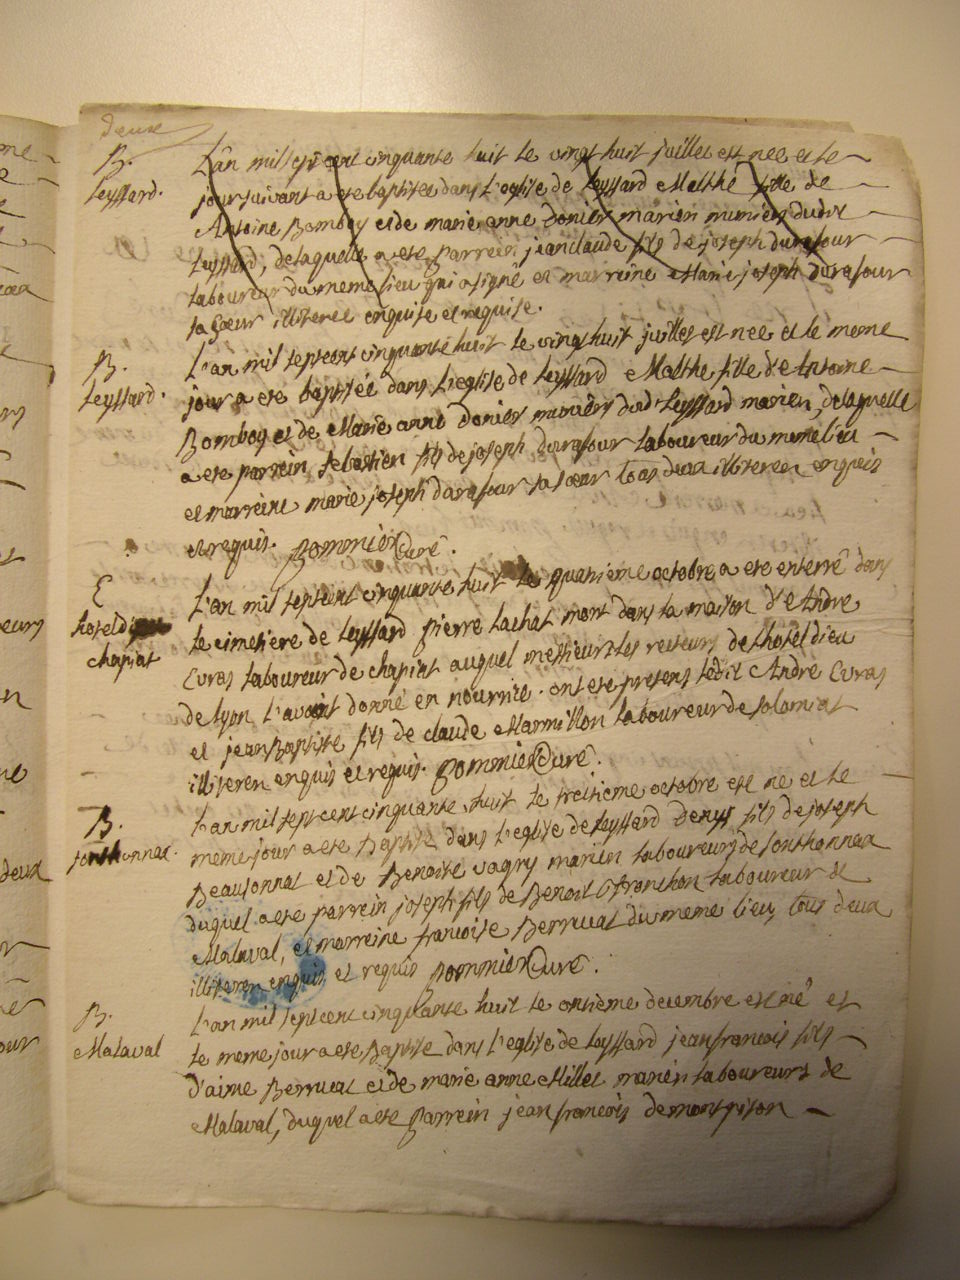 deux
B.
Leyssard.
L'an mil sept cent cinquante huit le vingt huit juillet est née et le
jour suivant a ete baptisée dans l'eglise de Leyssard Malthe fille de
Antoine Bomboy et de marie anne Donier mariéz muniérs dudit
Leyssard, de laquelle a ete parrein jean claude fils de joseph durafour
laboureur du meme lieu qui a signé et marreine Marie joseph durafour
sa soeur illiteree enquise et requise.
B.
Leyssard.
L'an mil sept cent cinquante huit le vingt huit juillet est née et le meme
jour a ete baptisée dans l'eglise de Leyssard Malthe fille d'Antoine
Bomboy et de Marie anne donier muniérs dud. Leyssard mariéz, de laquelle
a ete parrein sebastien fils de joseph durafour laboureur du meme lieu
et marreine marie joseph durafour sa soeur tous deux illiterez enquis
et requis. pommier Curé.
E
hotel dieu
chapiat
L'an mil sept cent cinquante huit le quatrieme octobre a ete enterré dans
le cimetiere de Leyssard pierre Lachat mort dans la maison d'Andre
Evras laboureur de chapiat auquel messieurs les recteurs de l'hotel dieu
de lyon l'avoint donné en nourrice. ont ete presens ledit Andre Evras
et jean Baptiste fils de claude Marmillon laboureur de solomiat
illiterez enquis et requis. pommier Curé.
B.
sonthonnax.
L'an mil sept cent cinquante huit le treisieme octobre est né et le
meme jour a ete Baptisé dans l'eglise de Leyssard Denys fils de joseph
Beausonnat et de Benoite vagry mariéz laboureurs de sonthonnax
duquel a ete parrein joseph fils de Benoit franchon laboureur de
Malaval, et marreine francoise Berrucat du meme lieu, tous deux
illiterez enquis et requis pommier Curé.
B.
Malaval
L'an mil sept cent cinquante huit le onsieme decembre est né et
le meme jour a ete Baptisé dans l'eglise de Leyssard jean francois fils
d'aimé Berrucat et de marie anne Millet mariéz laboureurs de
Malaval, duquel a ete parrein jean francois de montgison